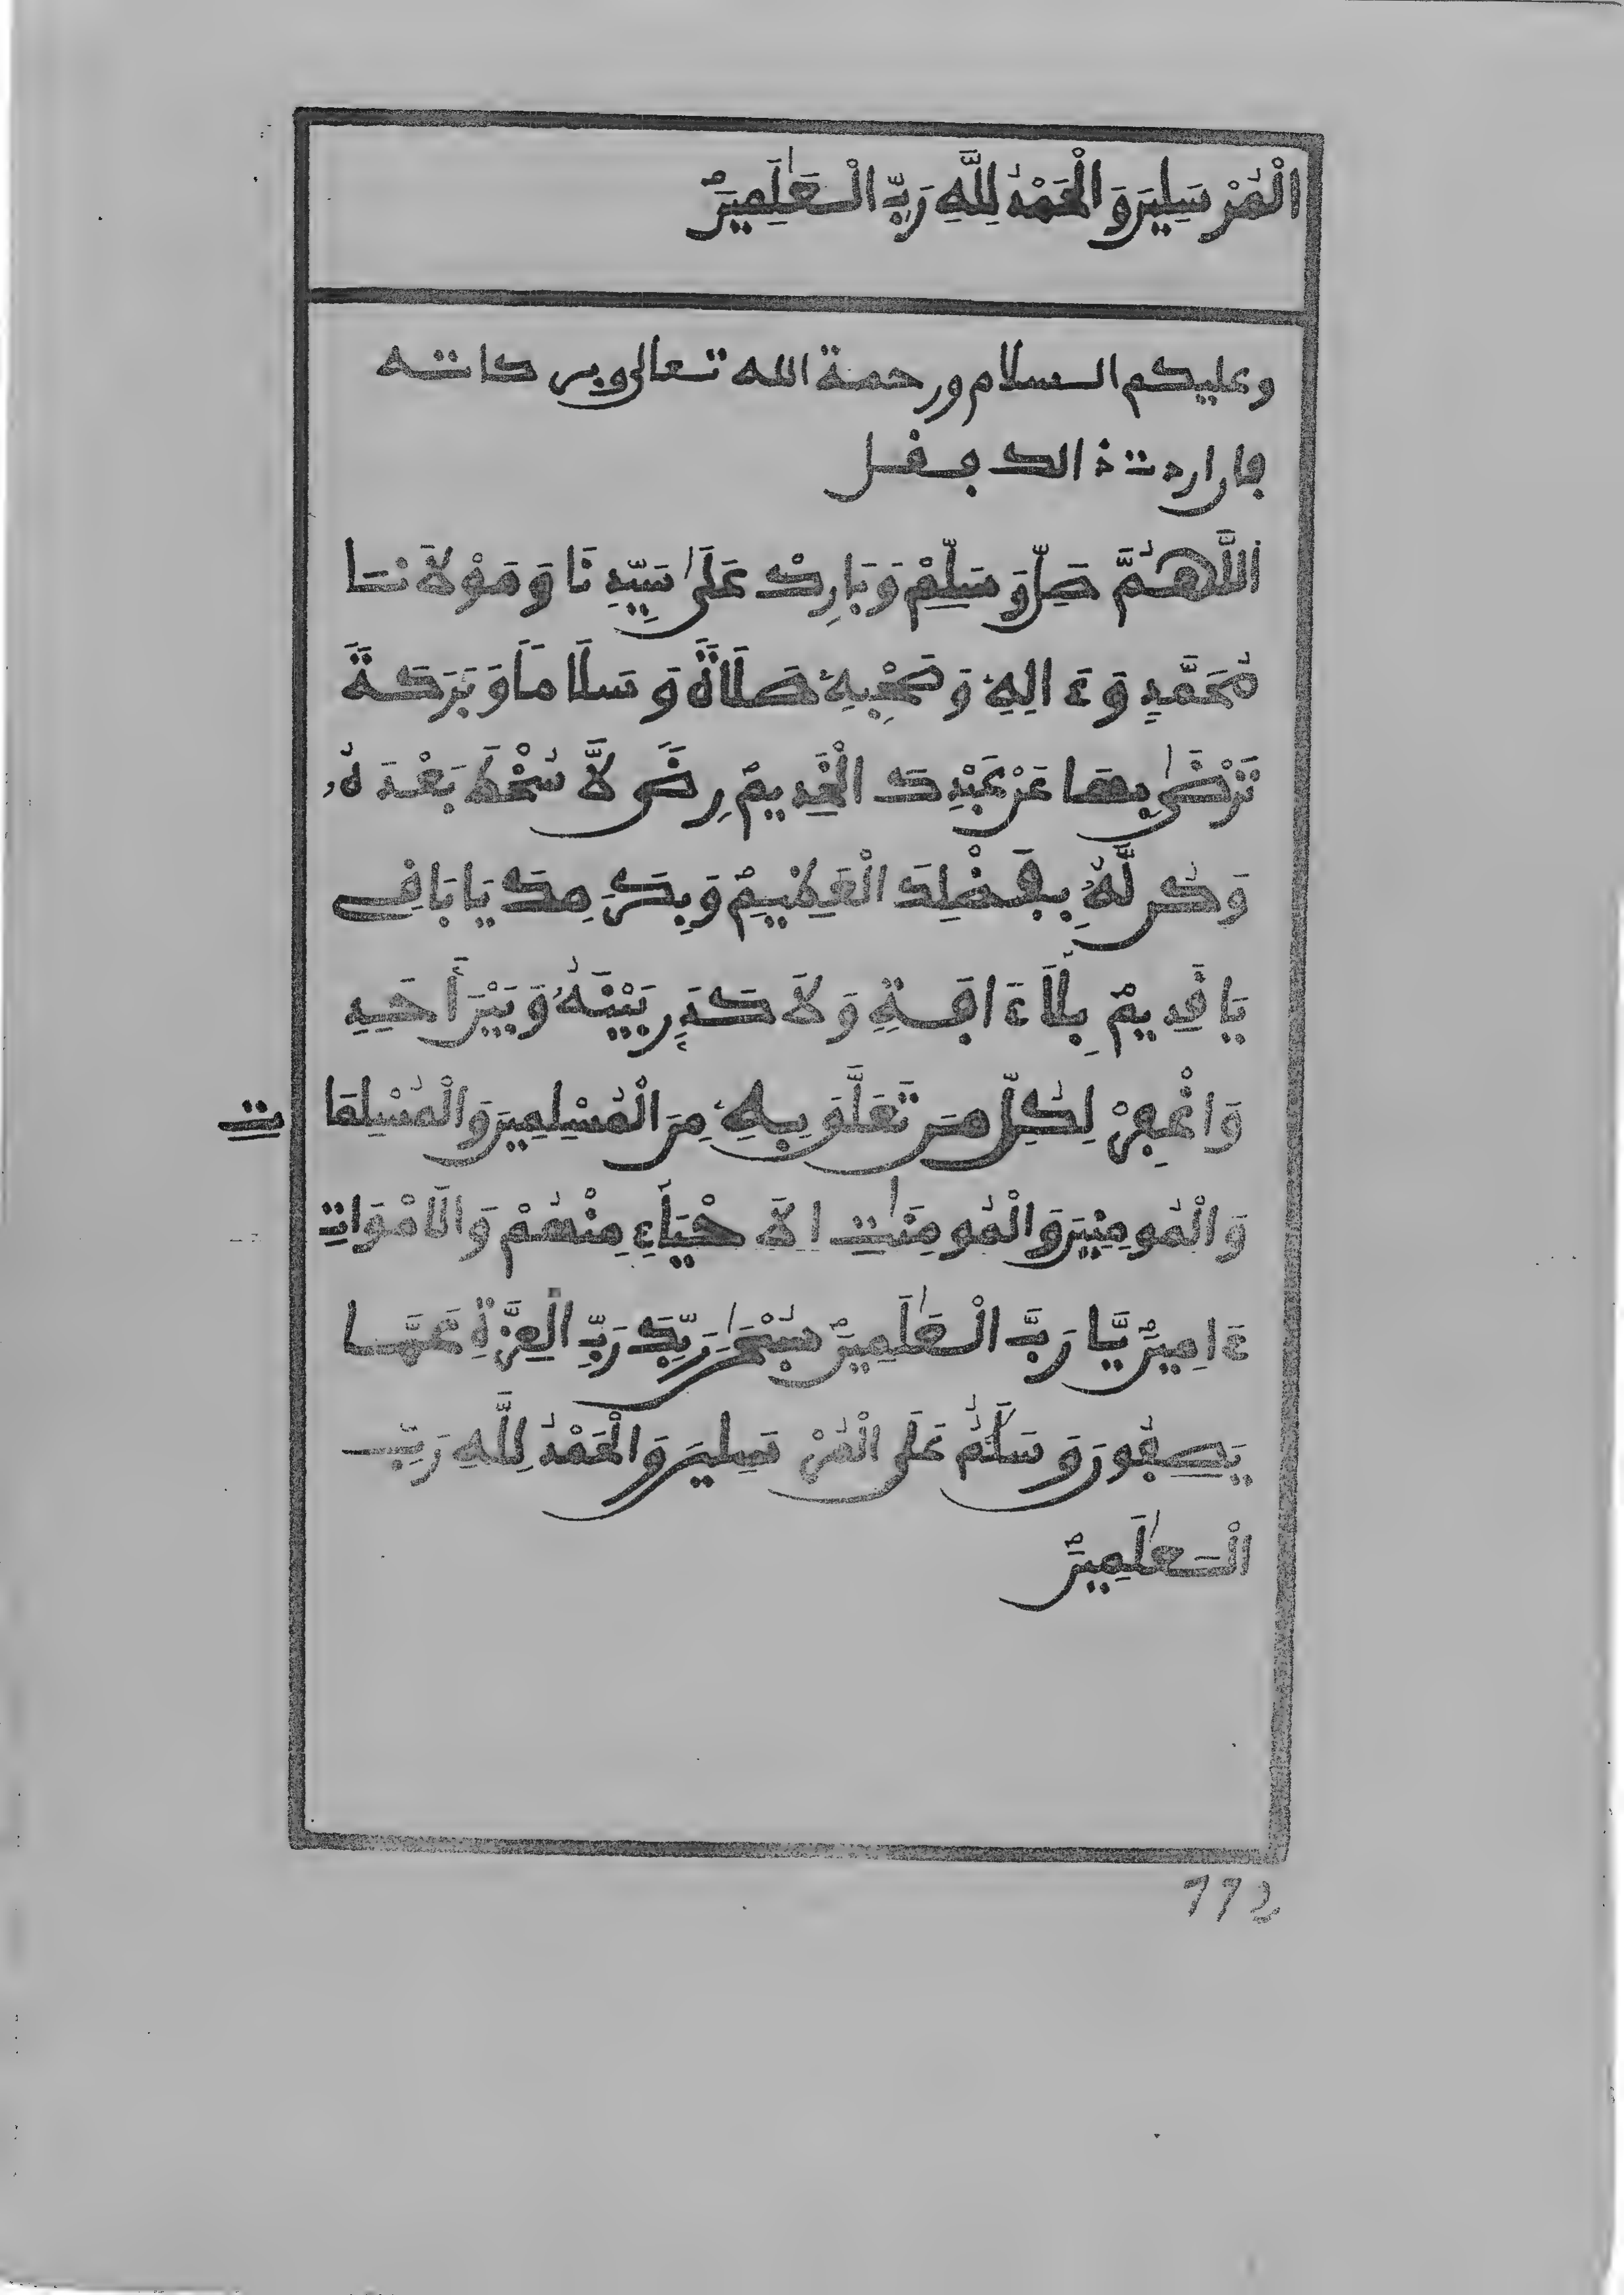 الْمُرْسَلِينَ وَالْحَمْدُ لِلَّهِ رَبِّ الْعَٰلَمِينَ
وعليكم السلام ورحمة الله تعالى وبركاته
فإن اردت ذالك فقل
اللَّهُمَّ صَلِّ وَسَلِّمْ وَبَارِكْ عَلَىٰ سَيِّدِنَا وَمَوْلَانَا
مُحَمَّدٍ وَءَالِهِ وَصَحْبِهِ صَلَاةً وَسَلَامًا وَبَرَكَةً
تَرْضَىٰ بِهَا عَنْ عَبْدِكَ الْخَدِيمِ رِضًى لَّا سُخْطَ بَعْدَهُ
وَكُن لَّهُ بِفَضْلِكَ الْعَظِيمِ وَبِكَرَمِكَ يَا بَاقِي
يَا قَدِيمُ بِلَا ءَافَةٍ وَلَا كَدَرٍ بَيْنَهُ وَبَيْنَ أَحَدٍ
وَاغْفِرْ لِكُلِّ مَن تَعَلَّقَ بِهِ مِنَ الْمُسْلِمِينَ وَالْمُسْلِمَاتِ
وَالْمُومِنِينَ وَالْمُومِنَٰتِ الَاحْيَاءِ مِنْهُمْ وَالَامْوَاتِ
ءَامِينَ يَا رَبَّ الْعَٰلَمِينَ سُبْحَٰنَ رَبِّكَ رَبِّ الْعِزَّةِ عَمَّا
يَصِفُونَ وَسَلَٰمٌ عَلَى الْمُرْسَلِينَ وَالْحَمْدُ لِلَّهِ رَبِّ
الْعَٰلَمِينَ
112